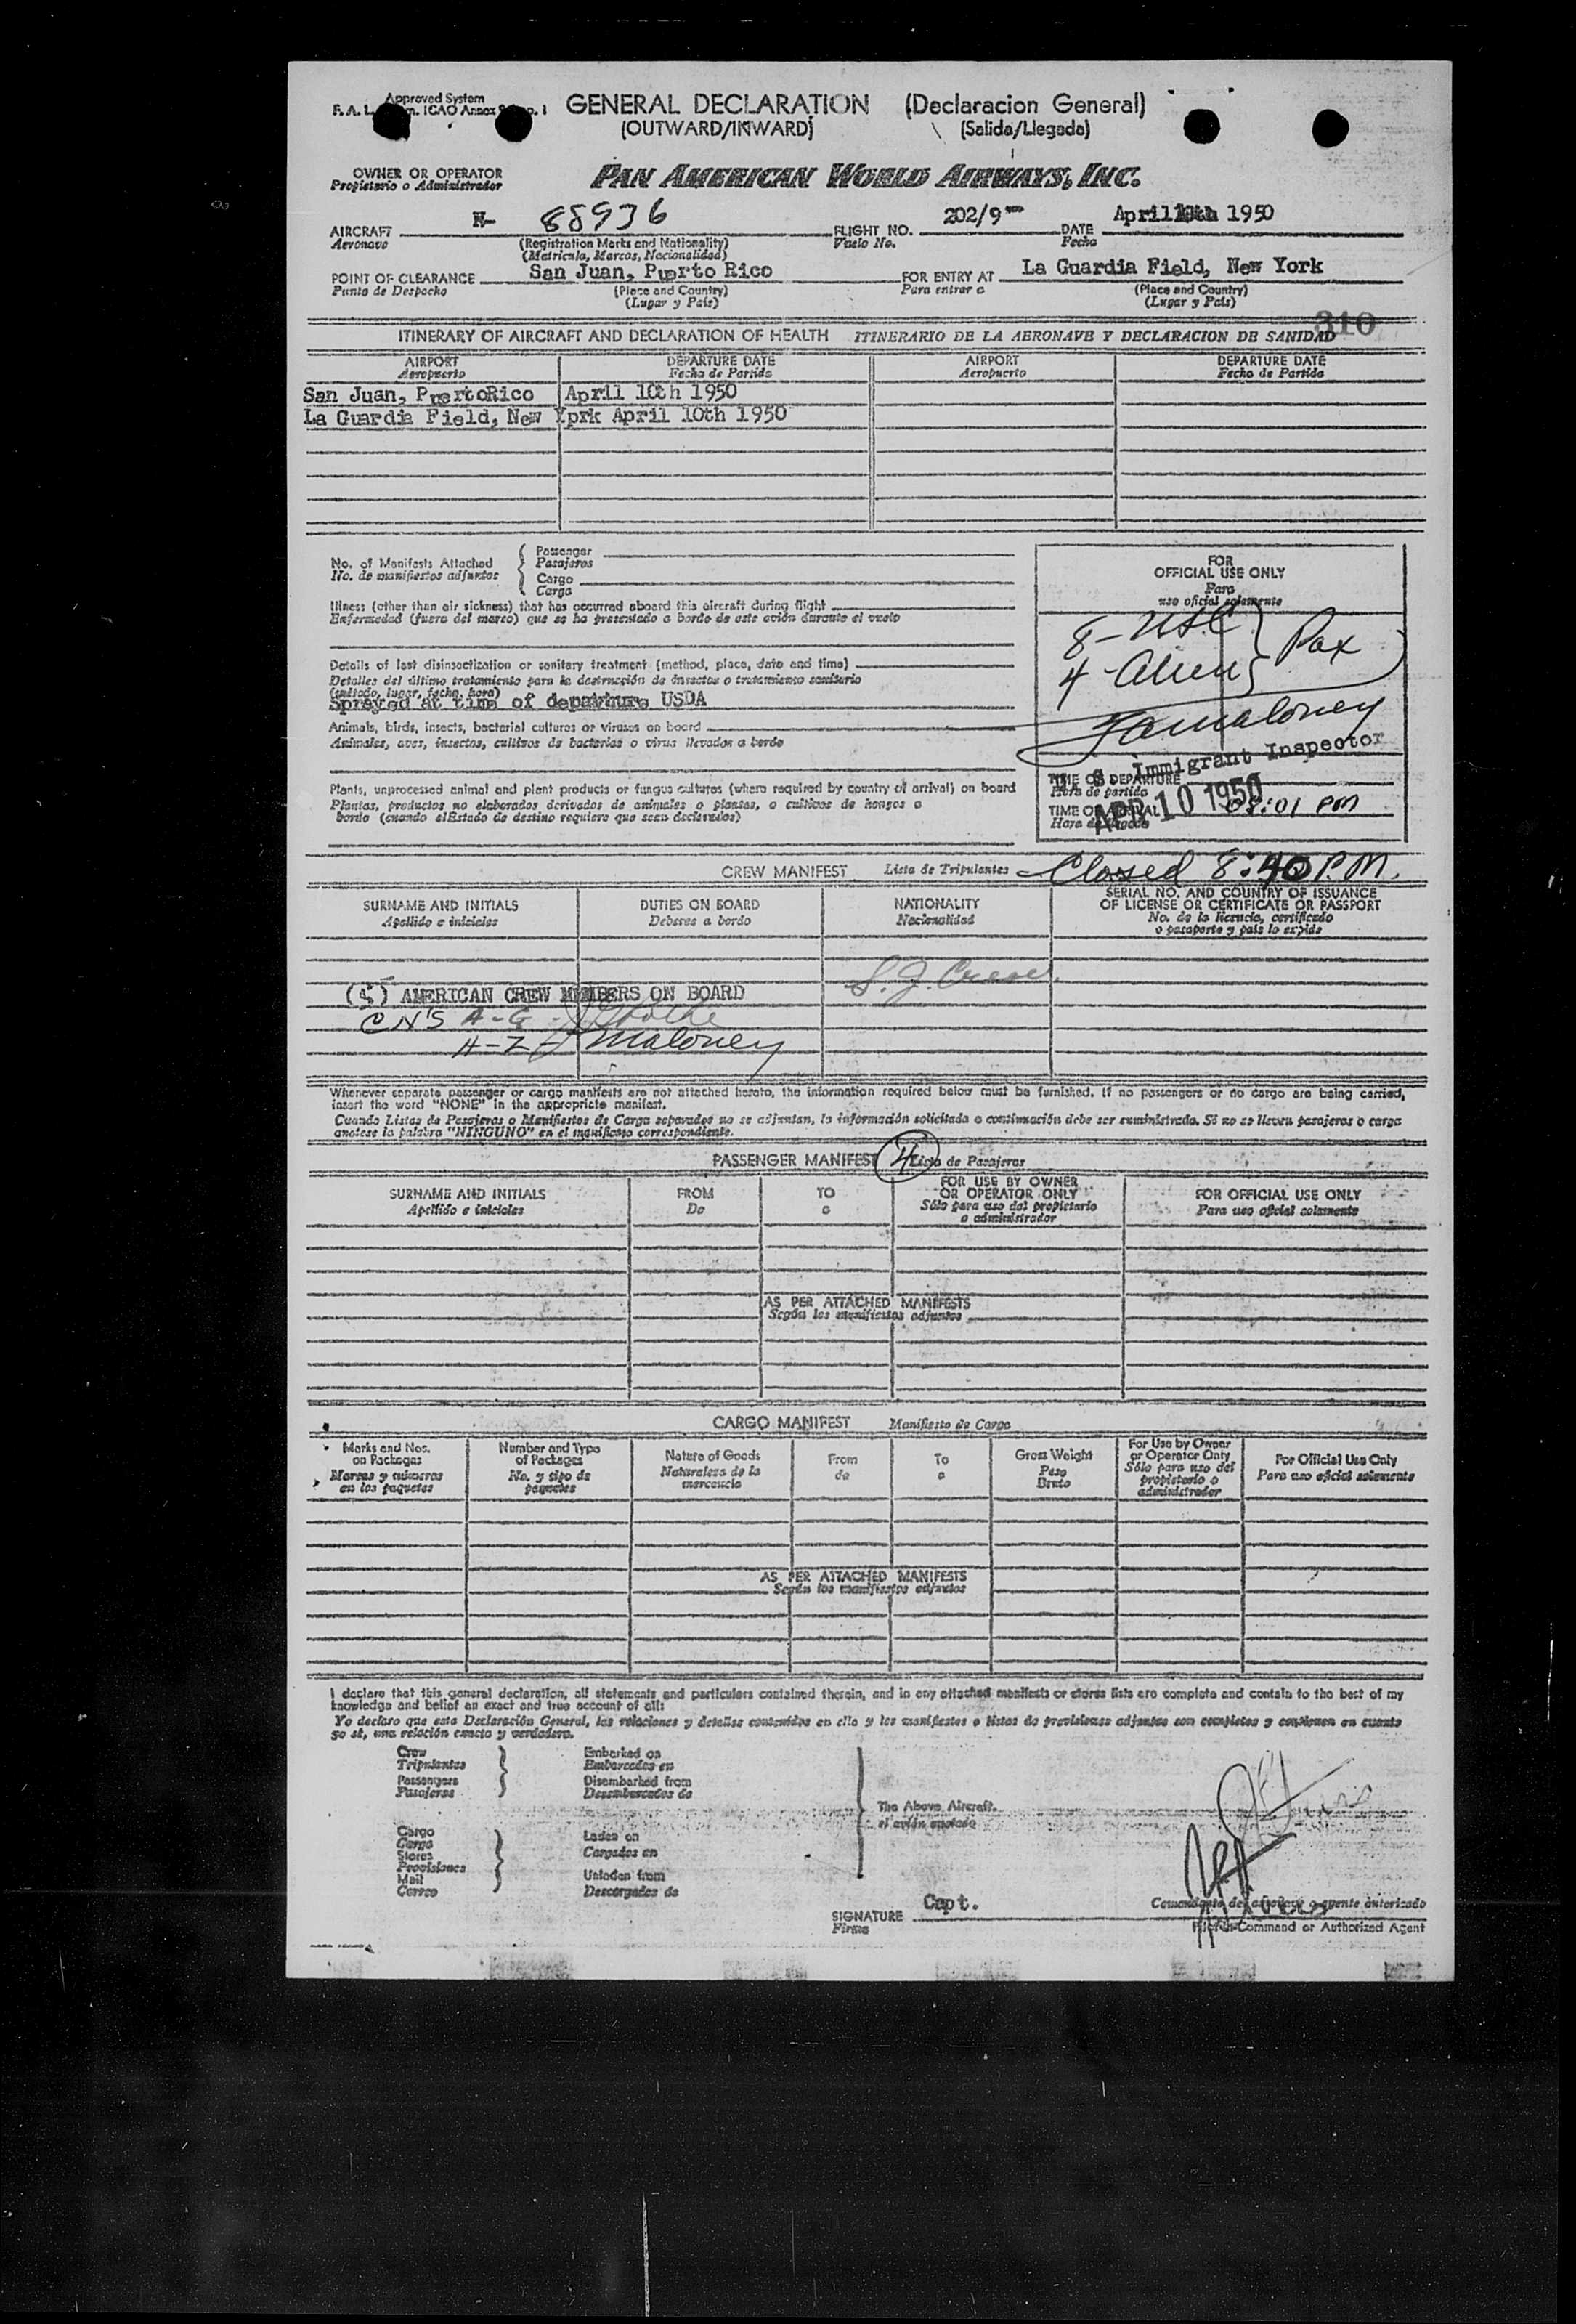 Approved System
GENERAL DECLARATION (Declaracion General)
(OUTWARD/INWARD) (Salida/Llegada)
OWNER OR OPERATOR
Propietario o Administrador
PAN AMERICAN WORLD AIRWAYS, INC.
AIRCRAFT N- 88936 FLIGHT NO. 202/9 DATE April 10th 1950
Aeronave (Registration Marks and Nationality) Vuelo No. Fecha
(Matricula, Marcas, Nacionalidad)
POINT OF CLEARANCE San Juan, Puerto Rico FOR ENTRY AT La Guardia Field, New York
Punto de Despacho (Place and Country) Para entrar a (Place and Country)
(Lugar y País) (Lugar y País)
310
ITINERARY OF AIRCRAFT AND DECLARATION OF HEALTH ITINERARIO DE LA AERONAVE Y DECLARACION DE SANIDAD
AIRPORT DEPARTURE DATE AIRPORT DEPARTURE DATE
Aeropuerto Fecha de Partida Aeropuerto Fecha de Partida
San Juan, PuertoRico April 10th 1950
La Guardia Field, New Yprk April 10th 1950
No. of Manifests Attached Passenger
No. de manifiestos adjuntos Pasajeros
Cargo
Carga
FOR
OFFICIAL USE ONLY
Para
uso oficial solamente
Illness (other than air sickness) that has occurred aboard this aircraft during flight
Enfermedad (fuera del mareo) que se ha presentado a bordo de este avión durante el vuelo
8 - U.S.C. Pax
4 - Aliens
Details of last disinsectization or sanitary treatment (method, place, date and time)
Detalles del último tratamiento para la destrucción de insectos o tratamiento sanitario
(método, lugar, fecha, hora)
Sprayed at time of departure USDA
Maloney
Animals, birds, insects, bacterial cultures or viruses on board
Animales, aves, insectos, cultivos de bacterias o virus llevados a bordo
Immigrant Inspector
TIME OF DEPARTURE
Hora de partida
APR 10 1950
TIME OF ARRIVAL 08:01 PM
Plants, unprocessed animal and plant products or fungus cultures (where required by country of arrival) on board
Plantas, productos no elaborados derivados de animales o plantas, o cultivos de hongos a
bordo (cuando el Estado de destino requiere que sean declarados)
CREW MANIFEST Lista de Tripulantes Closed 8:40 PM.
SURNAME AND INITIALS DUTIES ON BOARD NATIONALITY SERIAL NO. AND COUNTRY OF ISSUANCE
OF LICENSE OR CERTIFICATE OR PASSPORT
Apellido e iniciales Deberes a bordo Nacionalidad No. de la licencia, certificado
o pasaporte y país lo expide
(5) AMERICAN CREW MEMBERS ON BOARD
CNS A-G
H-Z Maloney
Whenever separate passenger or cargo manifests are not attached hereto, the information required below must be furnished. If no passengers or no cargo are being carried,
insert the word "NONE" in the appropriate manifest.
Cuando Listas de Pasajeros o Manifiestos de Carga separados no se adjuntan, la información solicitada a continuación debe ser suministrada. Si no se lleven pasajeros o carga
anotese la palabra "NINGUNO" en el manifiesto correspondiente.
PASSENGER MANIFEST 4 Lista de Pasajeros
SURNAME AND INITIALS FROM TO FOR USE BY OWNER OR OPERATOR ONLY FOR OFFICIAL USE ONLY
Apellido e iniciales De a Sólo para uso del propietario o administrador Para uso oficial solamente
AS PER ATTACHED MANIFESTS
Según los manifiestos adjuntos
CARGO MANIFEST Manifiesto de Carga
Marks and Nos. on Packages Number and Type of Packages Nature of Goods From To Gross Weight For Use by Owner or Operator Only For Official Use Only
Marcas y números en los paquetes No. y tipo de paquetes Naturaleza de la mercancía de a Peso Bruto Sólo para uso del propietario o administrador Para uso oficial solamente
AS PER ATTACHED MANIFESTS
Según los manifiestos adjuntos
I declare that this general declaration, all statements and particulars contained therein, and in any attached manifests or stores lists are complete and contain to the best of my
knowledge and belief an exact and true account of all:
Yo declaro que esta Declaración General, las relaciones y detalles contenidos en ella y los manifiestos o listas de provisiones adjuntos son completos y contienen en cuanto
yo sé, una relación exacta y verdadera.
Crew Embarked on
Tripulantes Embarcados en
Passengers Disembarked from
Pasajeros Desembarcados de
The Above Aircraft.
el avión anotado
Cargo Laden on
Carga Cargados en
Stores
Provisiones
Mail Unladen from
Correo Descargados de
SIGNATURE Capt.
Firma
Comandante del aeronave o agente autorizado
Pilot in Command or Authorized Agent